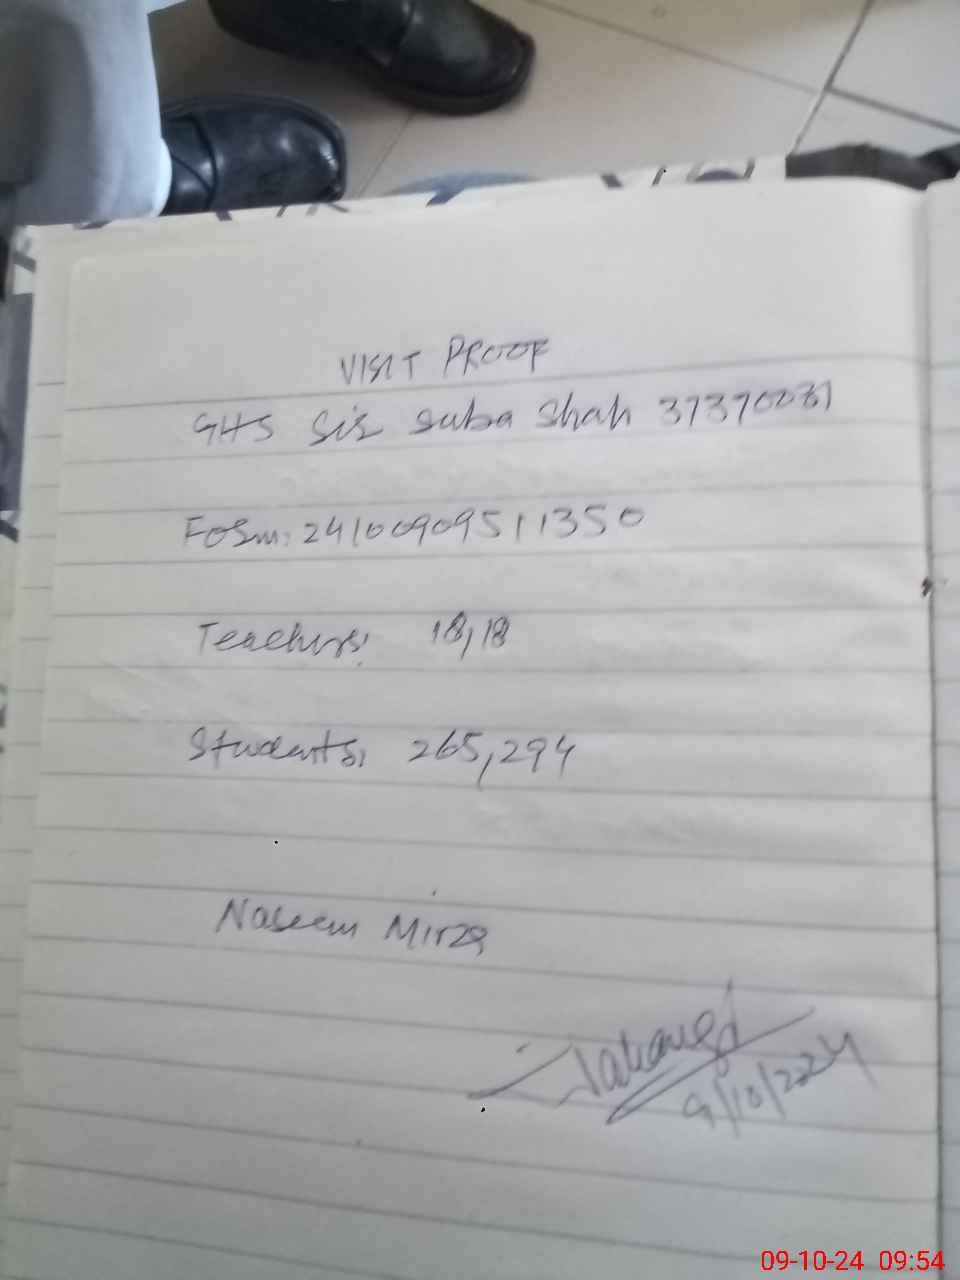 VISIT PROOF
GHS Sir Suba Shah 37370031
Form: 24100909511350
Teachers: 18,18
Students: 265,294
Naseem Mirza
9/10/2024
09-10-24 09:54